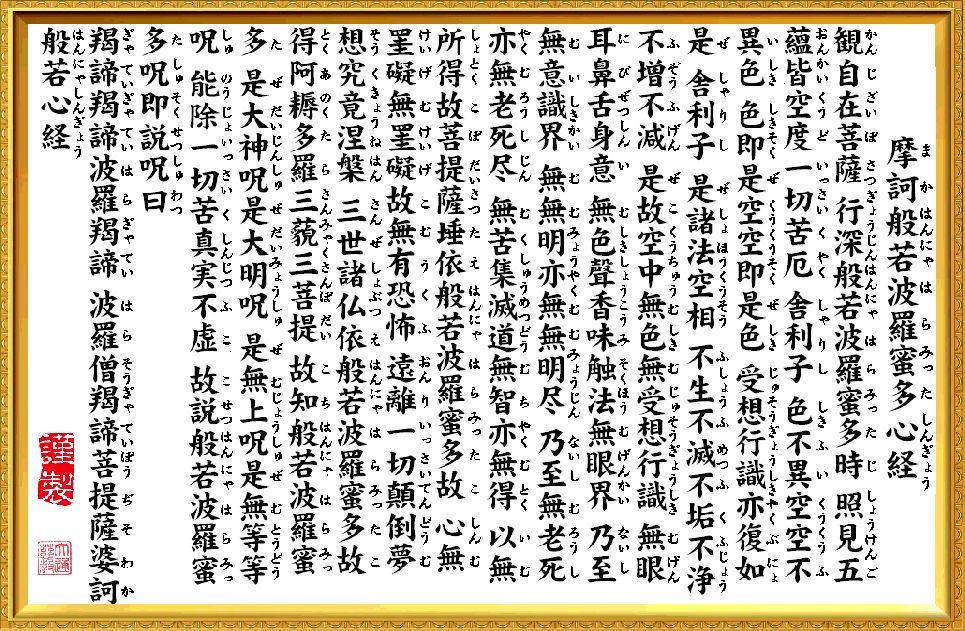 摩訶般若波羅蜜多心経
観自在菩薩 行深般若波羅蜜多時 照見五
蘊皆空度一切苦厄 舎利子 色不異空空不
異色 色即是空空即是色 受想行識亦復如
是 舎利子 是諸法空相 不生不滅不垢不浄
不増不減 是故空中無色無受想行識 無眼
耳鼻舌身意 無色聲香味触法無眼界 乃至
無意識界 無無明亦無無明尽 乃至無老死
亦無老死尽 無苦集滅道無智亦無得 以無
所得故菩提薩埵依般若波羅蜜多故 心無
罣礙無罣礙故無有恐怖 遠離一切顛倒夢
想究竟涅槃 三世諸仏依般若波羅蜜多故
得阿耨多羅三藐三菩提 故知般若波羅蜜
多 是大神呪是大明呪 是無上呪是無等等
呪 能除一切苦真実不虚 故説般若波羅蜜
多呪即説呪曰
羯諦羯諦波羅羯諦 波羅僧羯諦菩提薩婆訶
般若心経
謹製